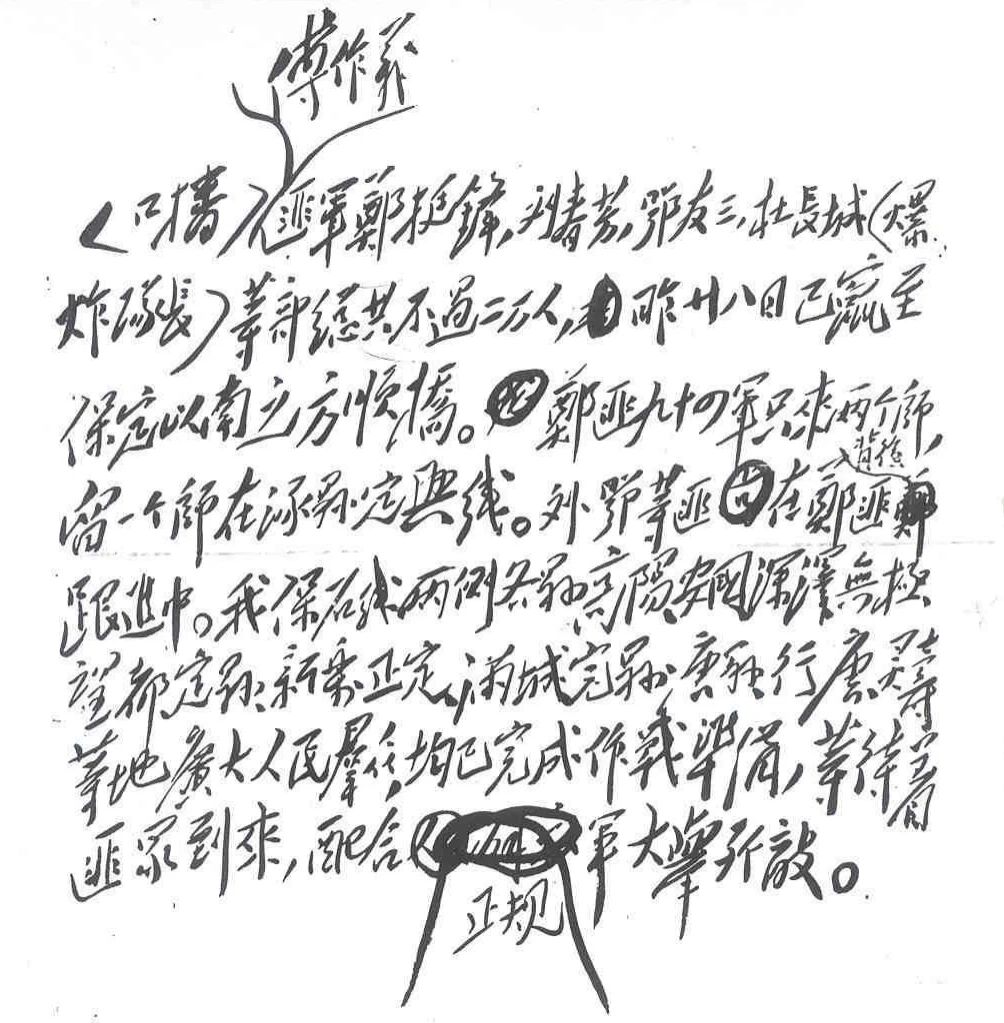 傅作義
（口播）匪軍鄭挺鋒，刘春芳，鄂友三，杜長城（爆
炸隊長）等部總共不過二万人，昨廿八日已竄至
保定以南之方順橋。鄭匪九十四軍只來两个師，
背後
留一个師在涿縣定興线。刘鄂等匪在鄭匪
跟進中。我保石线两側各縣高陽安國深澤無極
望都定縣新樂正定，满城完縣唐縣行唐灵壽
等地廣大人民羣众，均已完成作战準備，等待着
匪眾到來，配合軍大舉歼敵。
正规